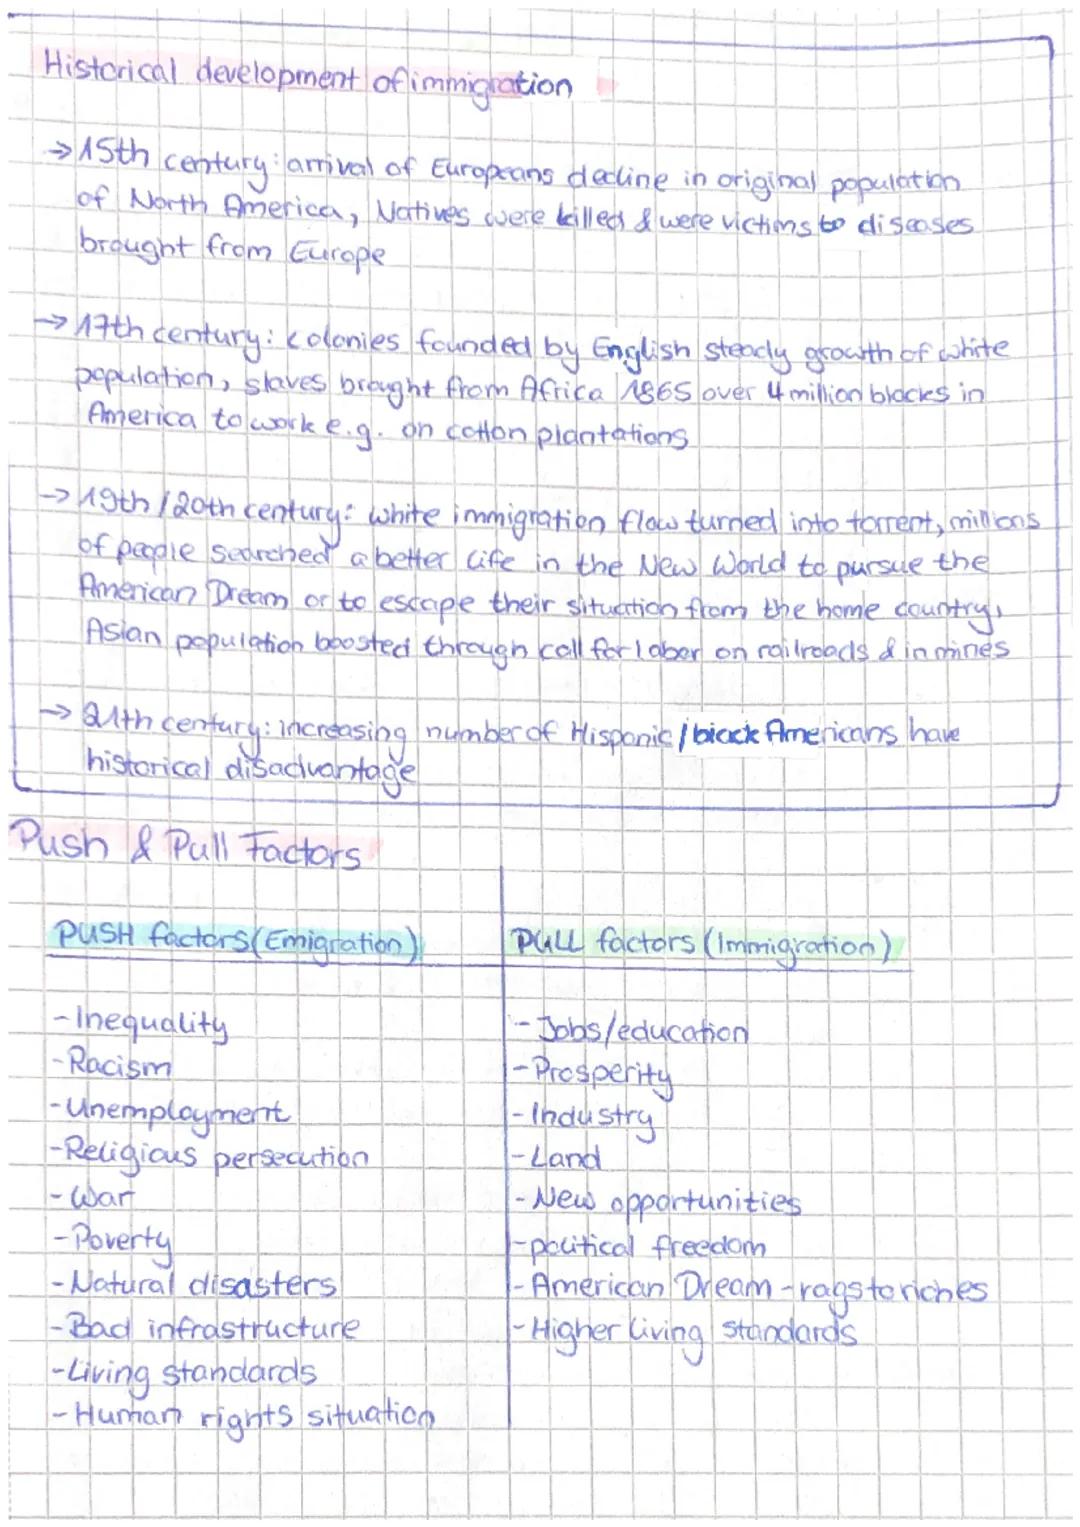 Historical development of immigration
→ 15th century: arrival of Europeans decline in original population
of North America, Natives were killed & were victims to diseases
brought from Europe
→ 17th century: colonies founded by English steady growth of white
population, slaves brought from Africa 1865 over 4 million blacks in
America to work e.g. on cotton plantations
→ 19th / 20th century: white immigration flow turned into torrent, millions
of people searched a better life in the New World to pursue the
American Dream or to escape their situation from the home country,
Asian population boosted through call for labor on railroads & in mines
→ 21th century: increasing number of Hispanic / black Americans have
historical disadvantage
Push & Pull Factors
PUSH factors (Emigration)
- Inequality
- Racism
- Unemployment
- Religious persecution
- War
- Poverty
- Natural disasters
- Bad infrastructure
- Living standards
- Human rights situation
PULL factors (Immigration)
- Jobs/education
- Prosperity
- Industry
- Land
- New opportunities
- political freedom
- American Dream - rags to riches
- Higher living standards